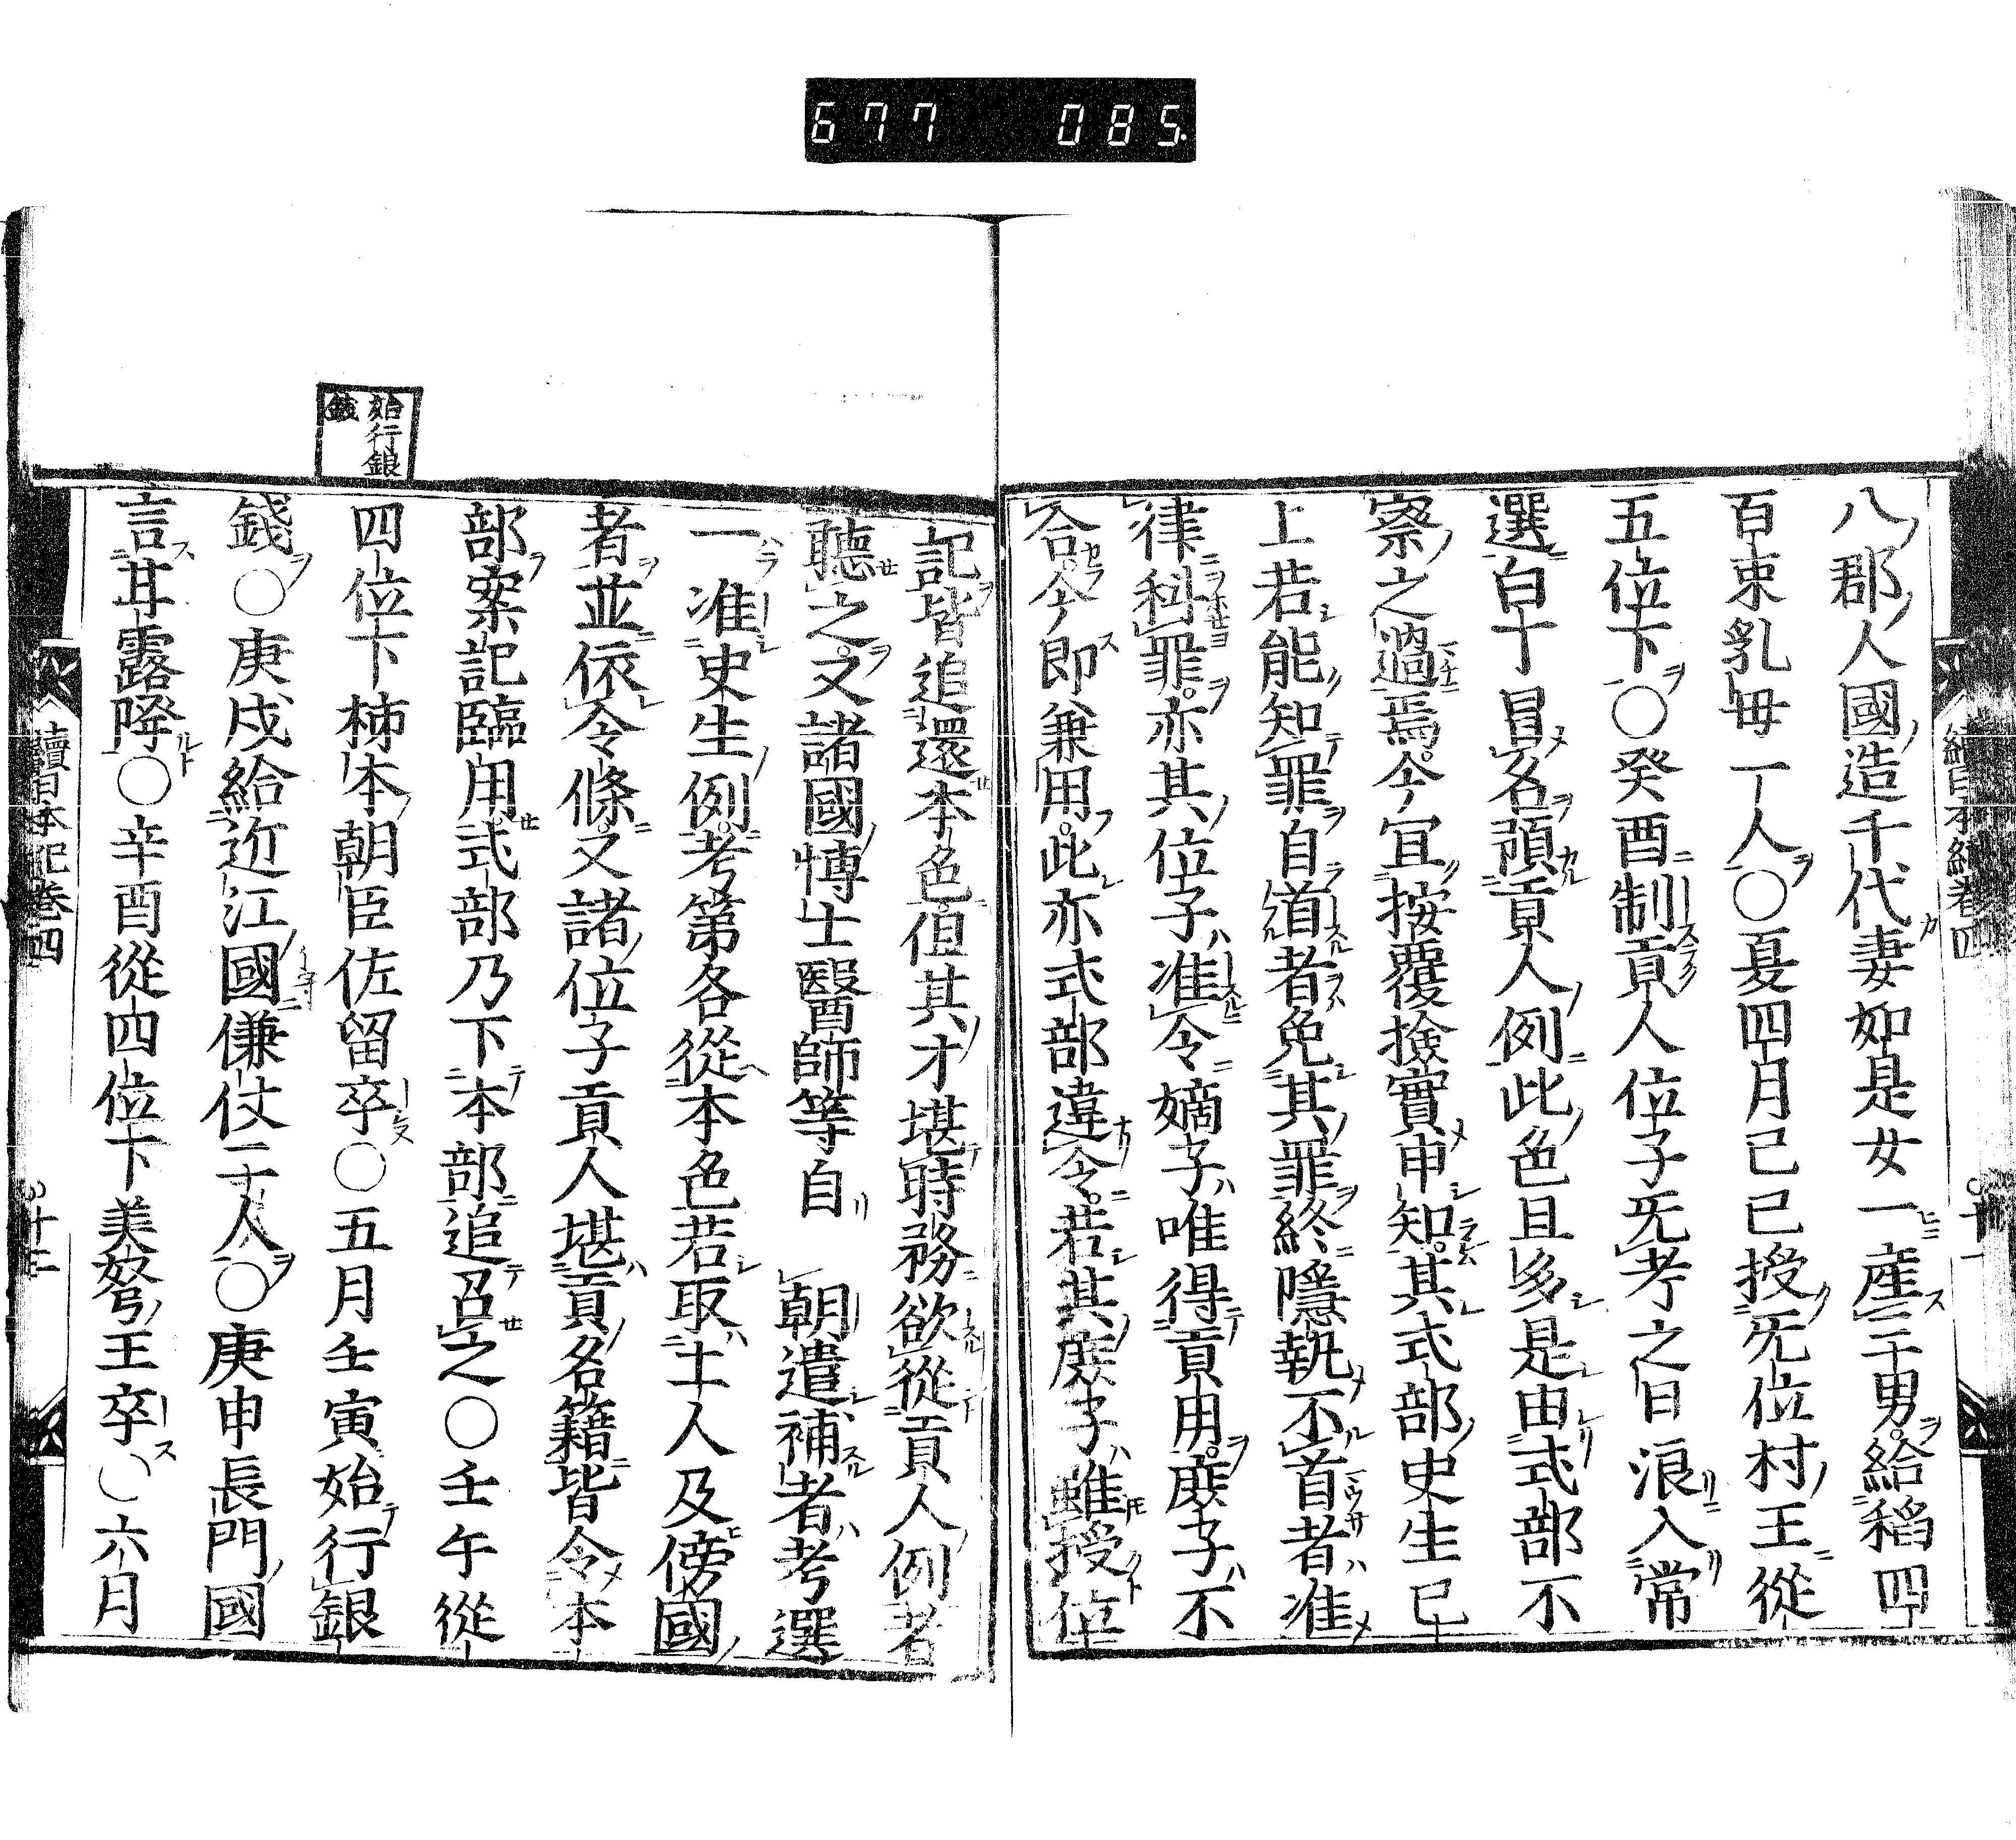 677 085.
八郡人國造千代妻如是女一產二男給稻四
百束乳母一人○夏四月己巳授旡位村王從
五位下○癸酉制貢人位子旡考之日浪入常
選白丁冒名預貢人例此色且多是由式部不
察之過焉今宜按覆撿實申知其式部史生已
上若能知罪自道者免其罪終隱執不首者准
律科罪亦其位子准令嫡子唯得貢用庶子不
合今即兼用此亦式部違令若其庶子雖授位
記皆追還本色但其才堪時務欲從貢人例者
聽之又諸國博士醫師等自 朝遣補者考選
一准史生例考第各從本色若取土人及傍國
者並依令條又諸位子貢人堪貢名籍皆令本
部案記臨用式部乃下本部追召之○壬午從
四位下柿本朝臣佐留卒○五月壬寅始行銀
錢○庚戍給近江國傔仗二十人○庚申長門國
言耳露降○辛酉從四位下美努王卒○六月
始行銀
錢
續日本紀卷四
十一
續日本紀卷四
十二